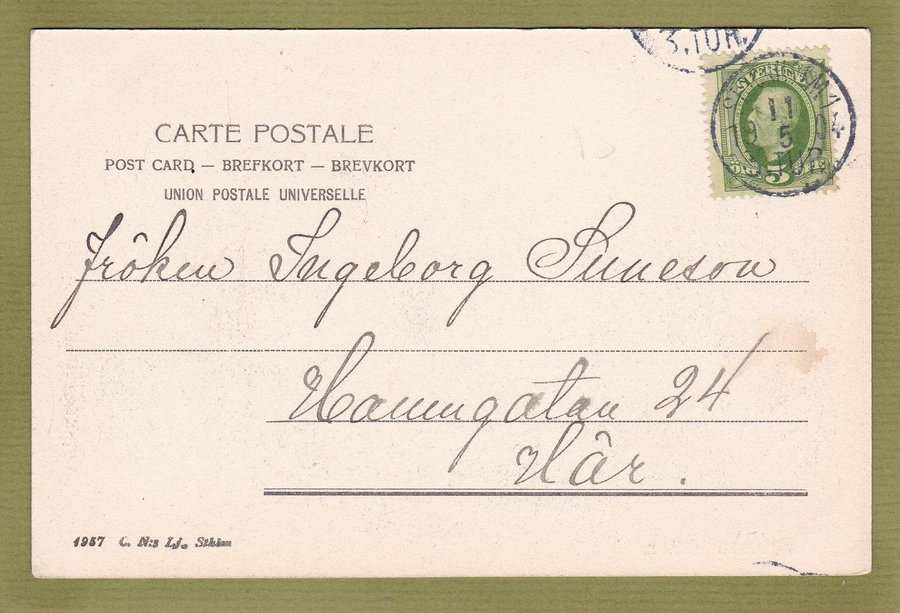 3.TUR.
SVERIGE
11
5
TUR
5
CARTE POSTALE
POST CARD — BREFKORT — BREVKORT
UNION POSTALE UNIVERSELLE
Fröken Ingeborg Suneson
Hamngatan 24
Här.
1957 C. N:s Lj., Sthlm